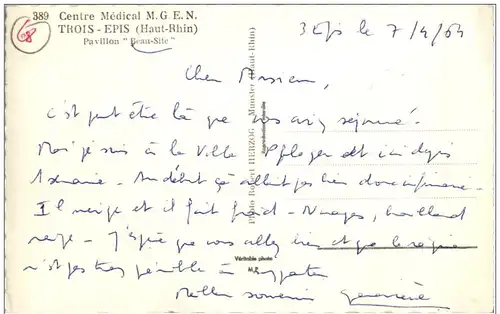 389 Centre Médical M. G. E. N.
TROIS-EPIS (Haut-Rhin)
Pavillon "Beau-Site"
3 Epis le 7/4/64
Cher Monsieur,
c'est peut être là que vous avez séjourné.
Moi je suis à la Villa Pfleger et ici depuis
1 semaine - Au début ça allait pas bien donc infirmerie -
Il neige et il fait froid - Nuages, brouillard
neige - J'espère que vous allez bien et que le régime
n'est pas trop pénible à supporter
Meilleur souvenir Geneviève
Photo Robert HERZOG - Munster (Haut-Rhin)
Reproduction interdite
Véritable photo